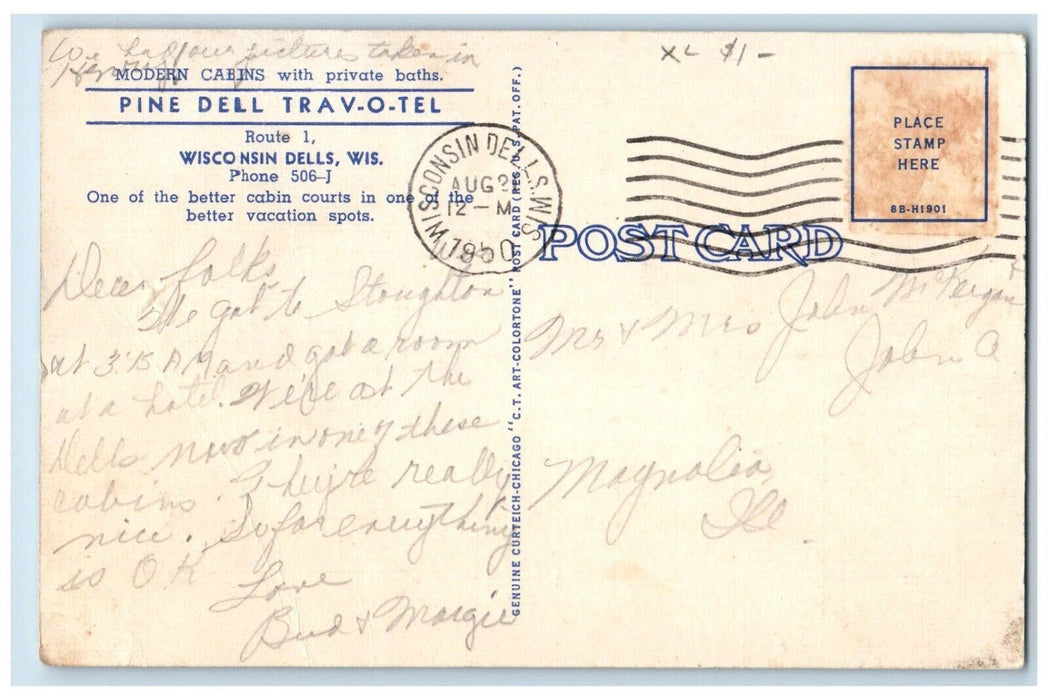 We had our pictures taken in
Henry
MODERN CABINS with private baths.
PINE DELL TRAV-O-TEL
Route 1,
WISCONSIN DELLS, WIS.
Phone 506-J
One of the better cabin courts in one of the
better vacation spots.
Dear folks
We got to Stoughton
at 3:15 AM and got a room
at a hotel. We're at the
Dells now in one of these
cabins. They're really
nice. So far everything
is OK
Love
Bud & Margie
WISCONSIN DELLS, WIS.
AUG 2
12 - M
1950
GENUINE CURTEICH-CHICAGO "C.T. ART-COLORTONE" POST CARD (REG. U.S. PAT. OFF.)
XL $1-
PLACE
STAMP
HERE
8B-H1901
POST CARD
Mr & Mrs John McKergan &
John A
Magnolia
Ill.